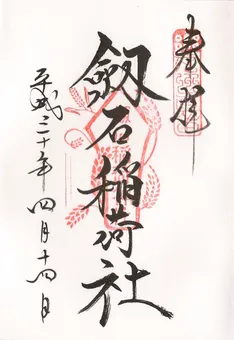 奉拝
劔石稲荷社
平成三十年四月十四日